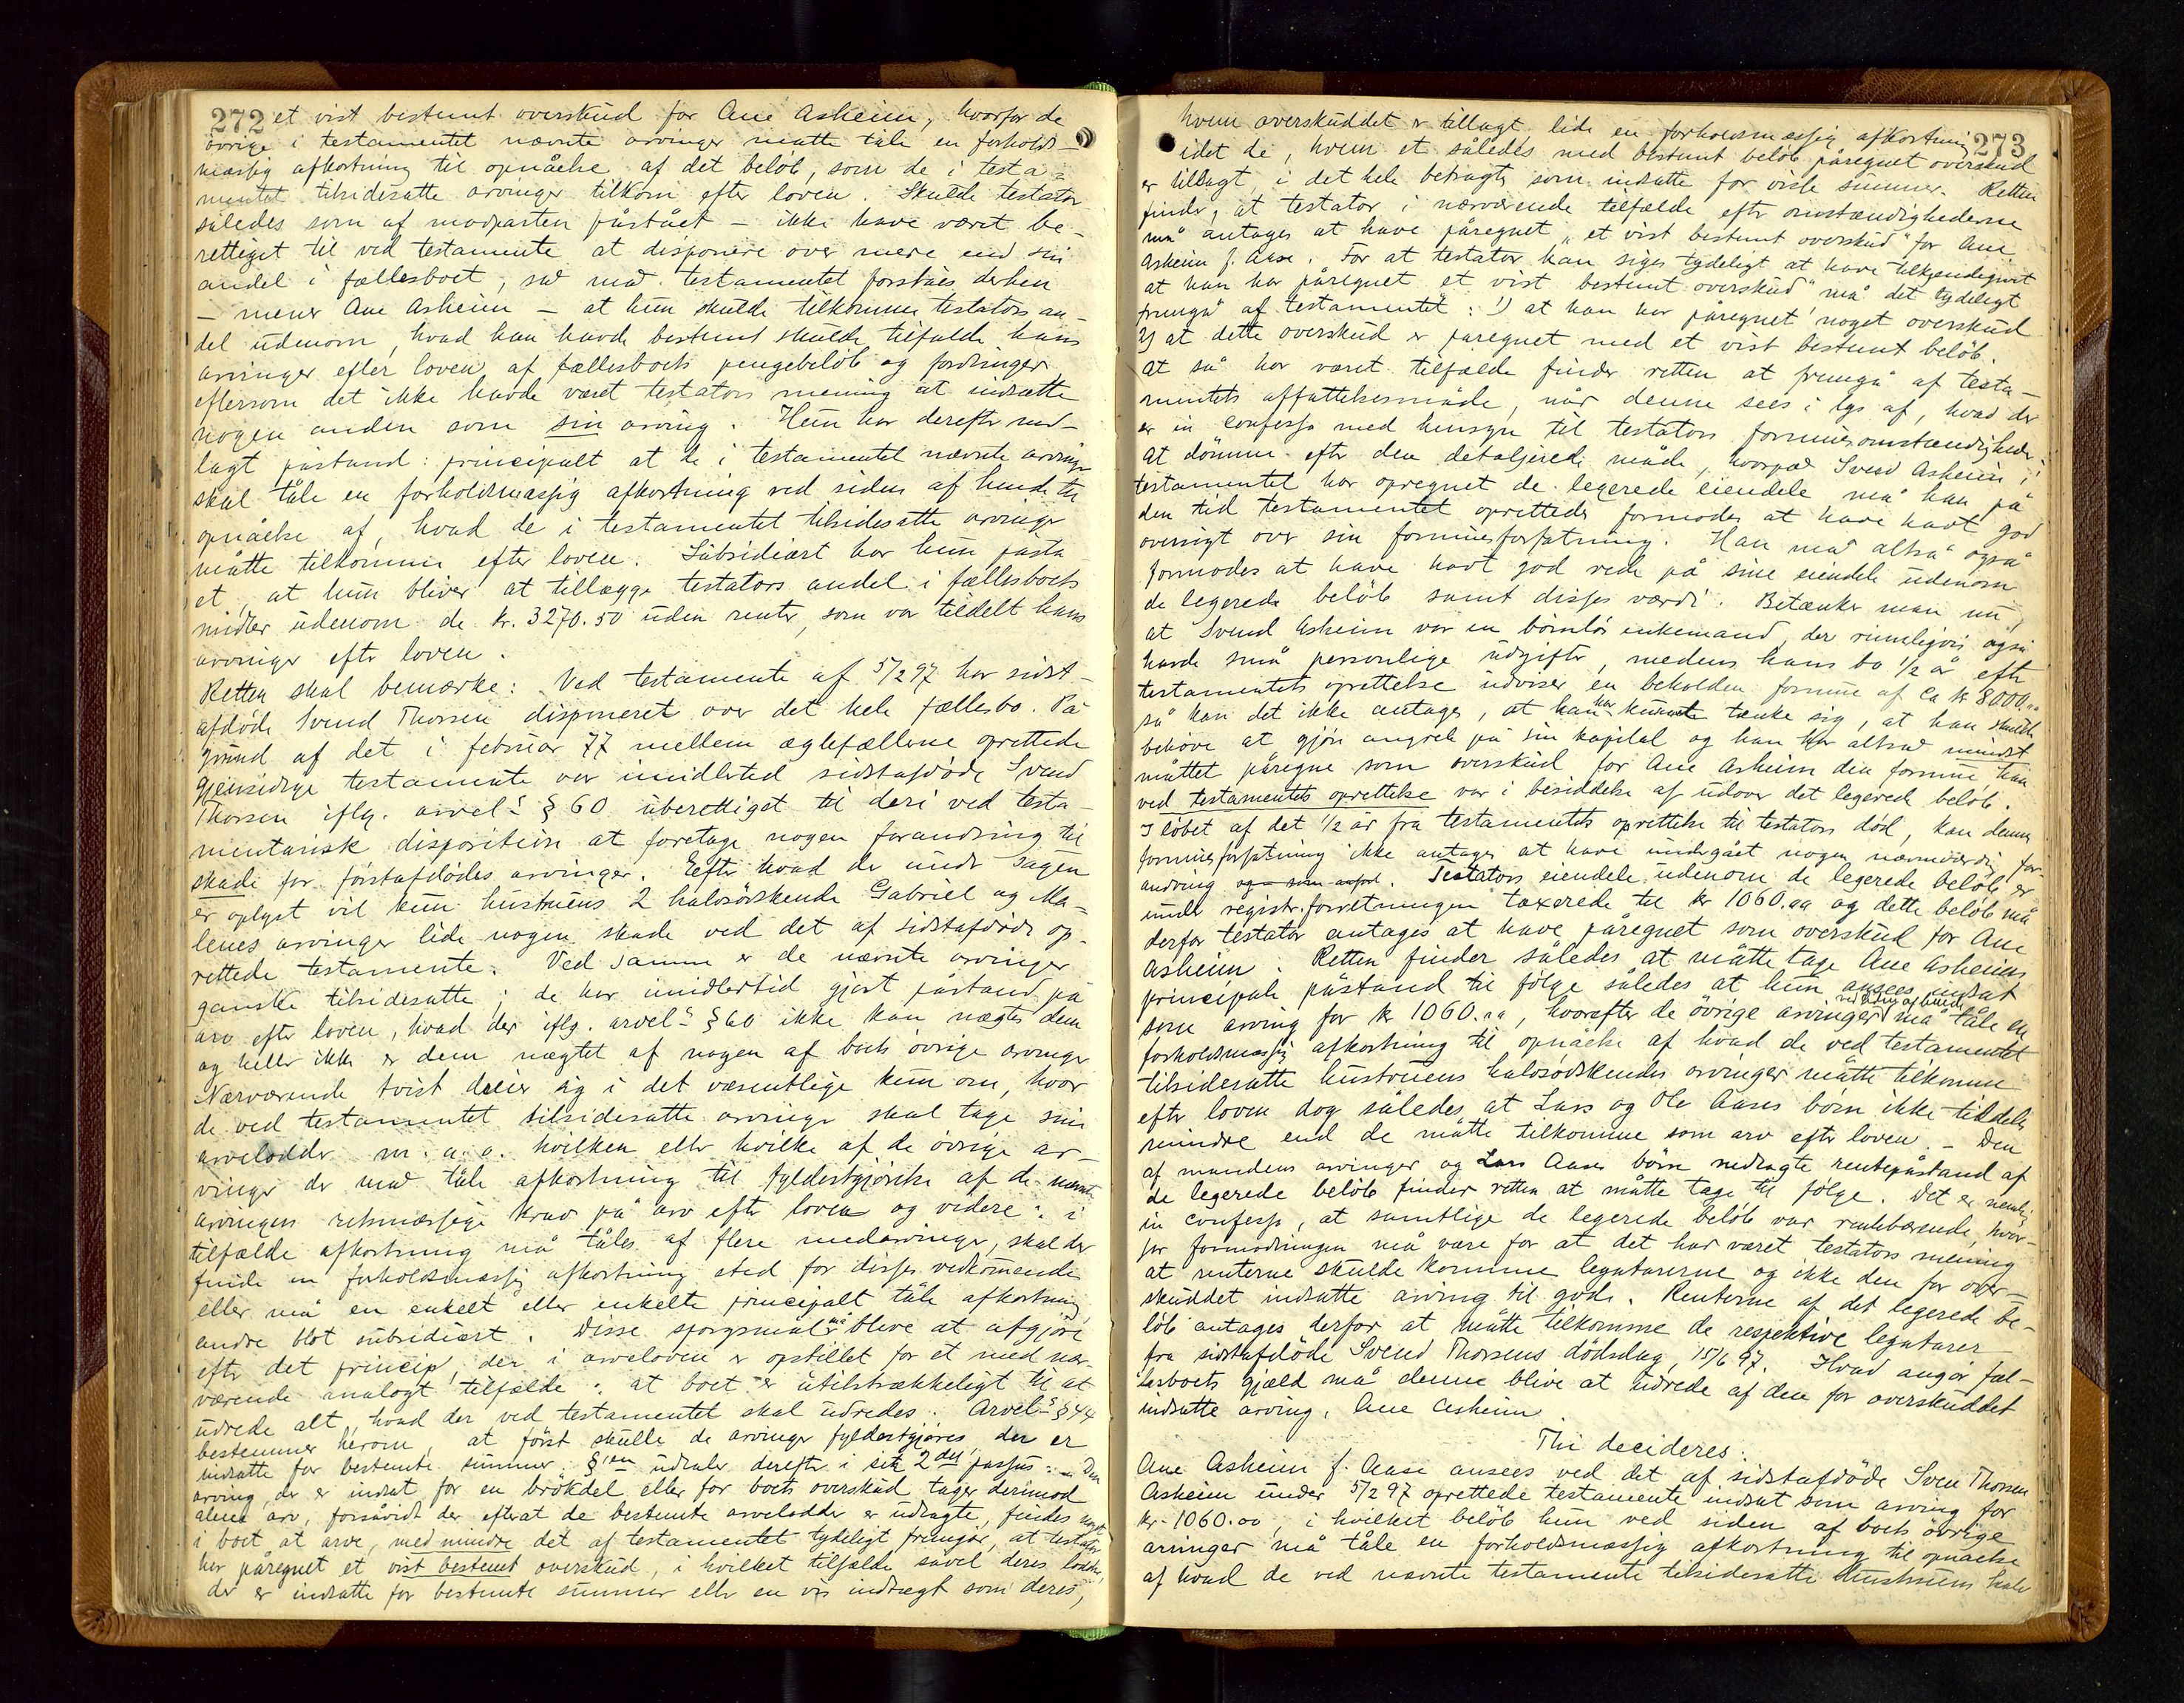 272 et vist bestemt overskud for Ane Asheim, hvorfor de
övrige i testamentet nævnte arvinger måtte tåle en forholds-
mæssig afkortning til opnåelse af det beløb, som de i testa-
mentet tilsidesatte arvinger tilkom efter loven. Skulde testator
således som af modparten påstået – ikke have været be-
rettiget til ved testamente at disponere over mere end sin
andel i fællesboet, så må testamentet forståes derhen
– mener Ane Asheim – at hun skulde tilkomme testators an-
del udenom, hvad han havde bestemt skulde tilfalde hans
arvinger efter loven af fællesboets pengebeløb og fordringer,
eftersom det ikke havde været testators mening at indsætte
nogen anden som sin arving. Hun har derefter ned-
lagt påstand: principalt at de i testamentet nævnte arvinger
skal tåle en forholdsmæssig afkortning ved siden af hende til
opnåelse af, hvad de i testamentet tilsidesatte arvinger
måtte tilkomme efter loven. Subsidiært har hun påstå-
et, at hun bliver at tillægge testators andel i fællesboets
midler udenom de kr. 3270.50 uden renter, som var tildelt hans
arvinger efter loven.
Retten skal bemærke: Ved testamente af 5/2 97 har sidst-
afdöde Svend Thorsen disponeret over det hele fællesbo. På
grund af det i februar 77 mellem ægtefællerne oprettede
gjensidige testamente var imidlertid sidstafdöde Svend
Thorsen iflg. arvel. § 60 uberettiget til deri ved testa-
mentarisk disposition at foretage nogen forandring til
skade for förstafdödes arvinger. Efter hvad der under sagen
er oplyst vil kun hustruens 2 halvsöskende Gabriel og Ma-
lenes arvinger lide nogen skade ved det af sidstafdöde op-
rettede testamente. Ved samme er de nævnte arvinger
ganske tilsidesatte; de har imidlertid gjort påstand på
arv efter loven, hvad der iflg. arvel. § 60 ikke kan nægtes dem
og heller ikke er dem nægtet af nogen af boets övrige arvinger
Nærværende tvist dreier sig i det væsentlige kun om, hvor
de ved testamentet tilsidesatte arvinger skal tage sine
arvelodder m. a. o. hvilken eller hvilke af de övrige ar-
vinger der må tåle afkortning til fyldestgjörelse af de nævnte
arvingers retmæssige krav på arv efter loven og videre: i
tilfælde afkortning må tåles af flere medarvinger, skal der
finde en forholdsmæssig afkortning sted for disses vedkommende
eller må en enkelt eller enkelte principalt tåle afkortning
andre blot subsidiært. Disse spørgsmål må blive at afgjöre
efter det princip, der i arveloven er opstillet for et med nær-
værende analogt tilfælde: at boet er utilstrækkeligt til at
udrede alt, hvad der ved testamentet skal udredes. Arvel. § 44
bestemmer herom, at först skulle de arvinger fyldestgjöres, der er
indsatte for bestemte summer. §'en udtaler derefter i sit 2det passus: "Den
arving, der er indsat for en brökdel eller for boets overskud tager derimod
alene arv, forsåvidt der efterat de bestemte arvelodder er udtagte, findes noget
i boet at arve, medmindre det af testamentet tydeligt fremgår, at testator
har påregnet et vist bestemt overskud, i hvilket tilfælde såvel deres lodder,
der er indsatte for bestemte summer eller en vis indtægt som deres,
273
hvem overskuddet er tillagt, lide en forholdsmæssig afkortning,
idet de, hvem et således med bestemt beløb påregnet overskud
er tillagt, i det hele betragtes som indsatte for visse summer. Retten
finder, at testator i nærværende tilfælde efter omstændighederne
må antages at have påregnet "et vist bestemt overskud" for Ane
Asheim f. Aase. For at testator kan siges tydeligt at have tilkjendegivet
at han har påregnet et vist bestemt overskud" må det tydeligt
fremgå af testamentet: 1) at han har påregnet noget overskud
2) at dette overskud er påregnet med et vist bestemt beløb.
At så har været tilfælde finder retten at fremgå af testa-
mentets affattelsesmåde, når denne sees i lys af, hvad der
er in confesso med hensyn til testators formuesomstændigheder.
At dömme efter den detaljerede måde, hvorpå Svend Asheim i
testamentet har opregnet de legerede eiendele må han på
den tid testamentet oprettedes formodes at have havt god
oversigt over sin formuesforfatning. Han må altså også
formodes at have havt god rede på sine eiendele udenom
de legerede beløb samt disses værdi. Betænker man nu,
at Svend Asheim var en börnlös enkemand, der rimeligvis også
havde små personlige udgifter, medens hans bo 1/2 år efter
testamentets oprettelse udviser en beholden formue af ca kr 8000.00
så kan det ikke antages, at han har kunnet tænke sig, at han skulde
behöve at gjöre angreb på sin kapital og han har altså mindst
måttet påregne som overskud for Ane Asheim den formue han
ved testamentets oprettelse var i besiddelse af udover det legerede beløb.
I löbet af det 1/2 år fra testamentets oprettelse til testators död, kan dennes
formuesforfatning ikke antages at have undergået nogen nævneværdig for-
andring og som anført. Testators eiendele udenom de legerede beløb er
under registr.forretningen taxerede til kr 1060.00 og dette beløb må
derfor testator antages at have påregnet som overskud for Ane
Asheim. Retten finder således at måtte tage Ane Asheims
principale påstand til fölge således at hun ansees indsat
som arving for kr 1060.00, hvorefter de övrige arvinger ved siden af hende må tåle en
forholdsmæssig afkortning til opnåelse af hvad de ved testamentet
tilsidesatte hustruens halvsödskendes arvinger måtte tilkomme
efter loven dog således, at Lars og Ole Aases börn ikke tildeles
mindre end de måtte tilkomme som arv efter loven. – Den
af mandens arvinger og Lars Aases börn nedlagte rentepåstand af
de legerede beløb finder retten at måtte tage til fölge. Det er nemlig
in confesso, at samtlige de legerede beløb var rentebærende, hvor-
for formodningen må være for at det har været testators mening
at renterne skulde komme legatarerne og ikke den for over-
skuddet indsatte arving til gode. Renterne af det legerede be-
löb antages derfor at måtte tilkomme de respektive legatarer
fra sidstafdöde Svend Thorsens dödsdag, 15/6 97. Hvad angår fæl-
lesboets gjæld må denne blive at udrede af den for overskuddet
indsatte arving, Ane Asheim.
Thi decideres:
Ane Asheim f. Aase ansees ved det af sidstafdöde Sven Thorsen
Asheim under 5/2 97 oprettede testamente indsat som arving for
kr. 1060.00, i hvilket beløb hun ved siden af boets övrige
arvinger må tåle en forholdsmæssig afkortning til opnåelse
af hvad de ved nævnte testamente tilsidesatte hustruens halv